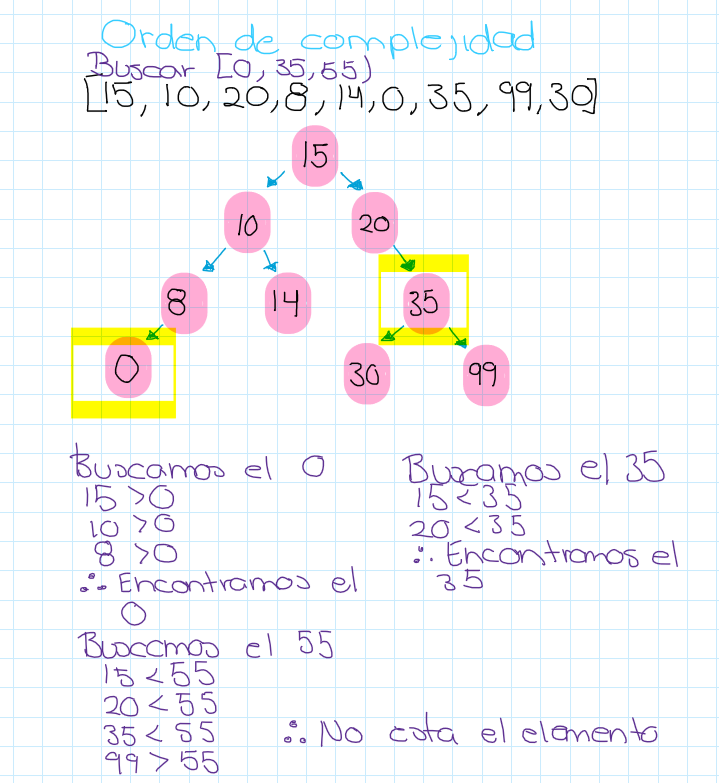 Orden de complejidad
Buscar [0, 35, 55)
[15, 10, 20, 8, 14, 0, 35, 99, 30]
15
10 20
8 14 35
0 30 99
Buscamos el 0
15 >0
10 >0
8 >0
∴ Encontramos el
0
Buscamos el 35
15 < 35
20 < 35
∴ Encontramos el
35
Buscamos el 55
15 < 55
20 < 55
35 < 55
99 > 55
∴ No esta el elemento